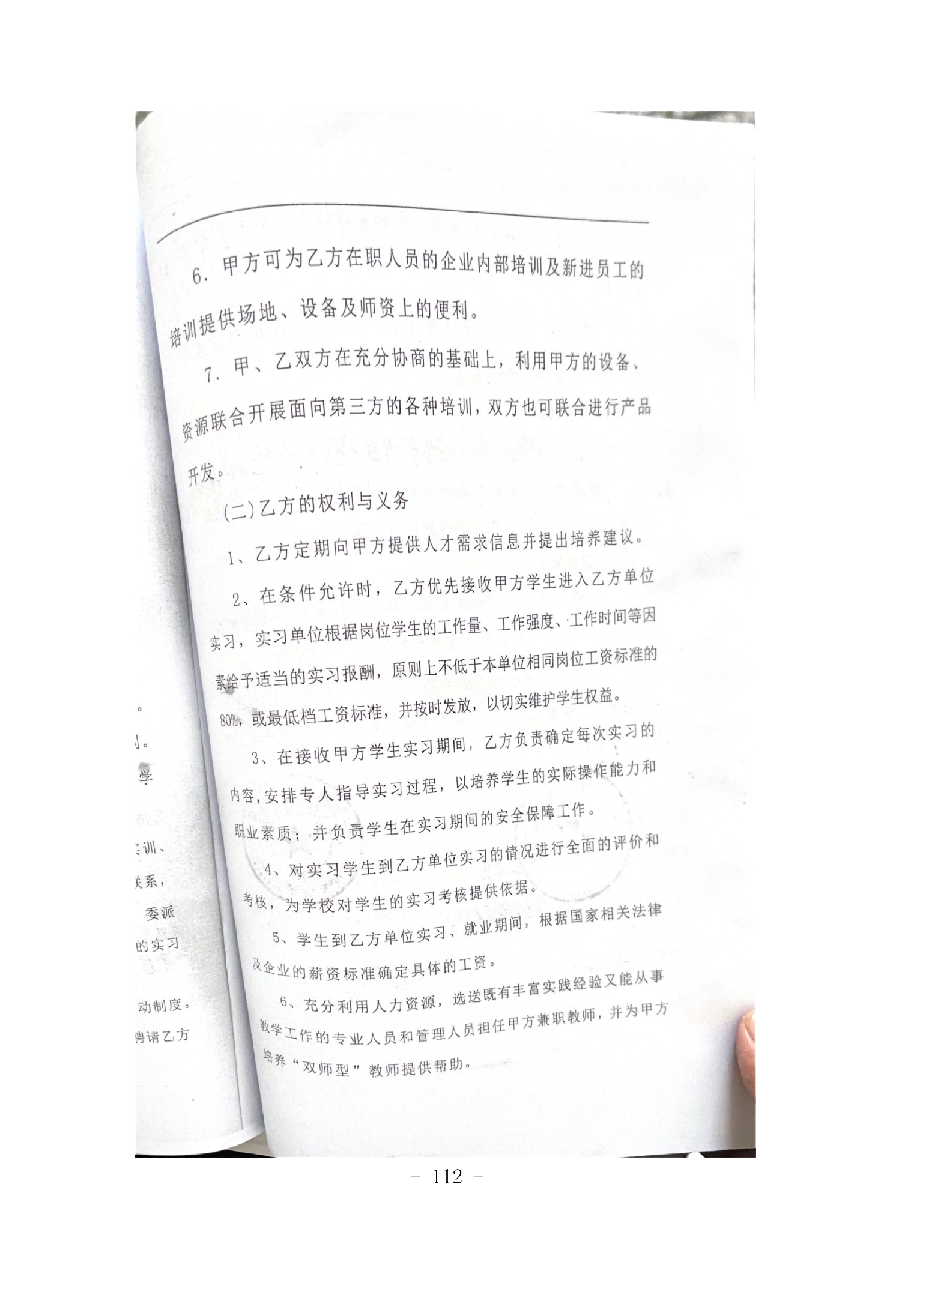 6. 甲方可为乙方在职人员的企业内部培训及新进员工的
培训提供场地、设备及师资上的便利。
7. 甲、乙双方在充分协商的基础上，利用甲方的设备、
资源联合开展面向第三方的各种培训，双方也可联合进行产品
开发。
(二)乙方的权利与义务
1、乙方定期向甲方提供人才需求信息并提出培养建议。
2、在条件允许时，乙方优先接收甲方学生进入乙方单位
实习，实习单位根据岗位学生的工作量、工作强度、工作时间等因
素给予适当的实习报酬，原则上不低于本单位相同岗位工资标准的
80%，或最低档工资标准，并按时发放，以切实维护学生权益。
3、在接收甲方学生实习期间，乙方负责确定每次实习的
内容，安排专人指导实习过程，以培养学生的实际操作能力和
职业素质；并负责学生在实习期间的安全保障工作。
4、对实习学生到乙方单位实习的情况进行全面的评价和
考核，为学校对学生的实习考核提供依据。
5、学生到乙方单位实习、就业期间，根据国家相关法律
及企业的薪资标准确定具体的工资。
6、充分利用人力资源，选送既有丰富实践经验又能从事
教学工作的专业人员和管理人员担任甲方兼职教师，并为甲方
培养“双师型”教师提供帮助。
学
训、
系，
委派
的实习
动制度。
聘请乙方
- 112 -